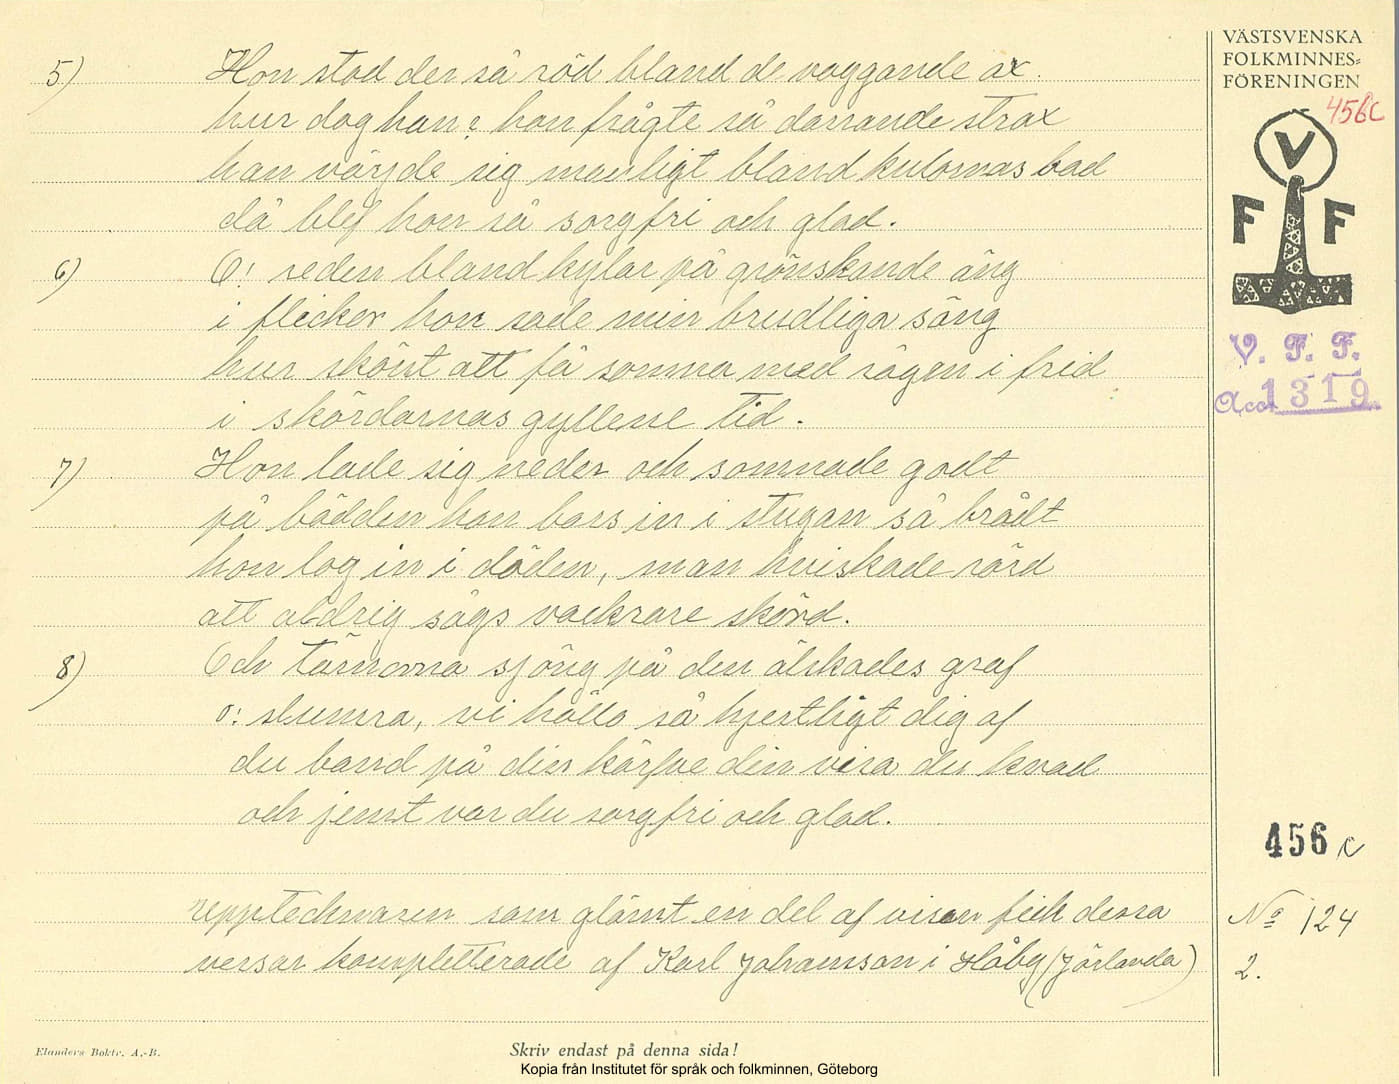 VÄSTSVENSKA
FOLKMINNES=
FÖRENINGEN
456c
V
F F
V. F. F.
Acc. 1319
5) Hon stod der så röd bland de vaggande ax.
hur dog han? hon frågte så darrande strax
han värjde sig manligt bland kulornas bad
då blef hon så sorgfri och glad.
6) O! reden bland kylar på grönskande äng
i flickor hon sade min brudliga säng
hur skönt att få somna med sägen i frid
i skördarnas gyllene tid.
7) Hon lade sig neder och somnade godt
på bädden hon bars in i stugan så brådt
hon log in i döden, man hviskade rörd
att aldrig sågs vackrare skörd.
8) Och tärnorna sjöng på den älskades graf
o! slumra, vi hålla så hjertligt dig af
du band på din kärfve din visa du kvad
och jemt var du sorgfri och glad.
upptecknaren som glömt en del af visan fick dessa
versar kompletterade af Karl Johansson i Håby (Jörlanda)
456 c
No 124
2.
Elanders Boktr. A.-B.
Skriv endast på denna sida!
Kopia från Institutet för språk och folkminnen, Göteborg